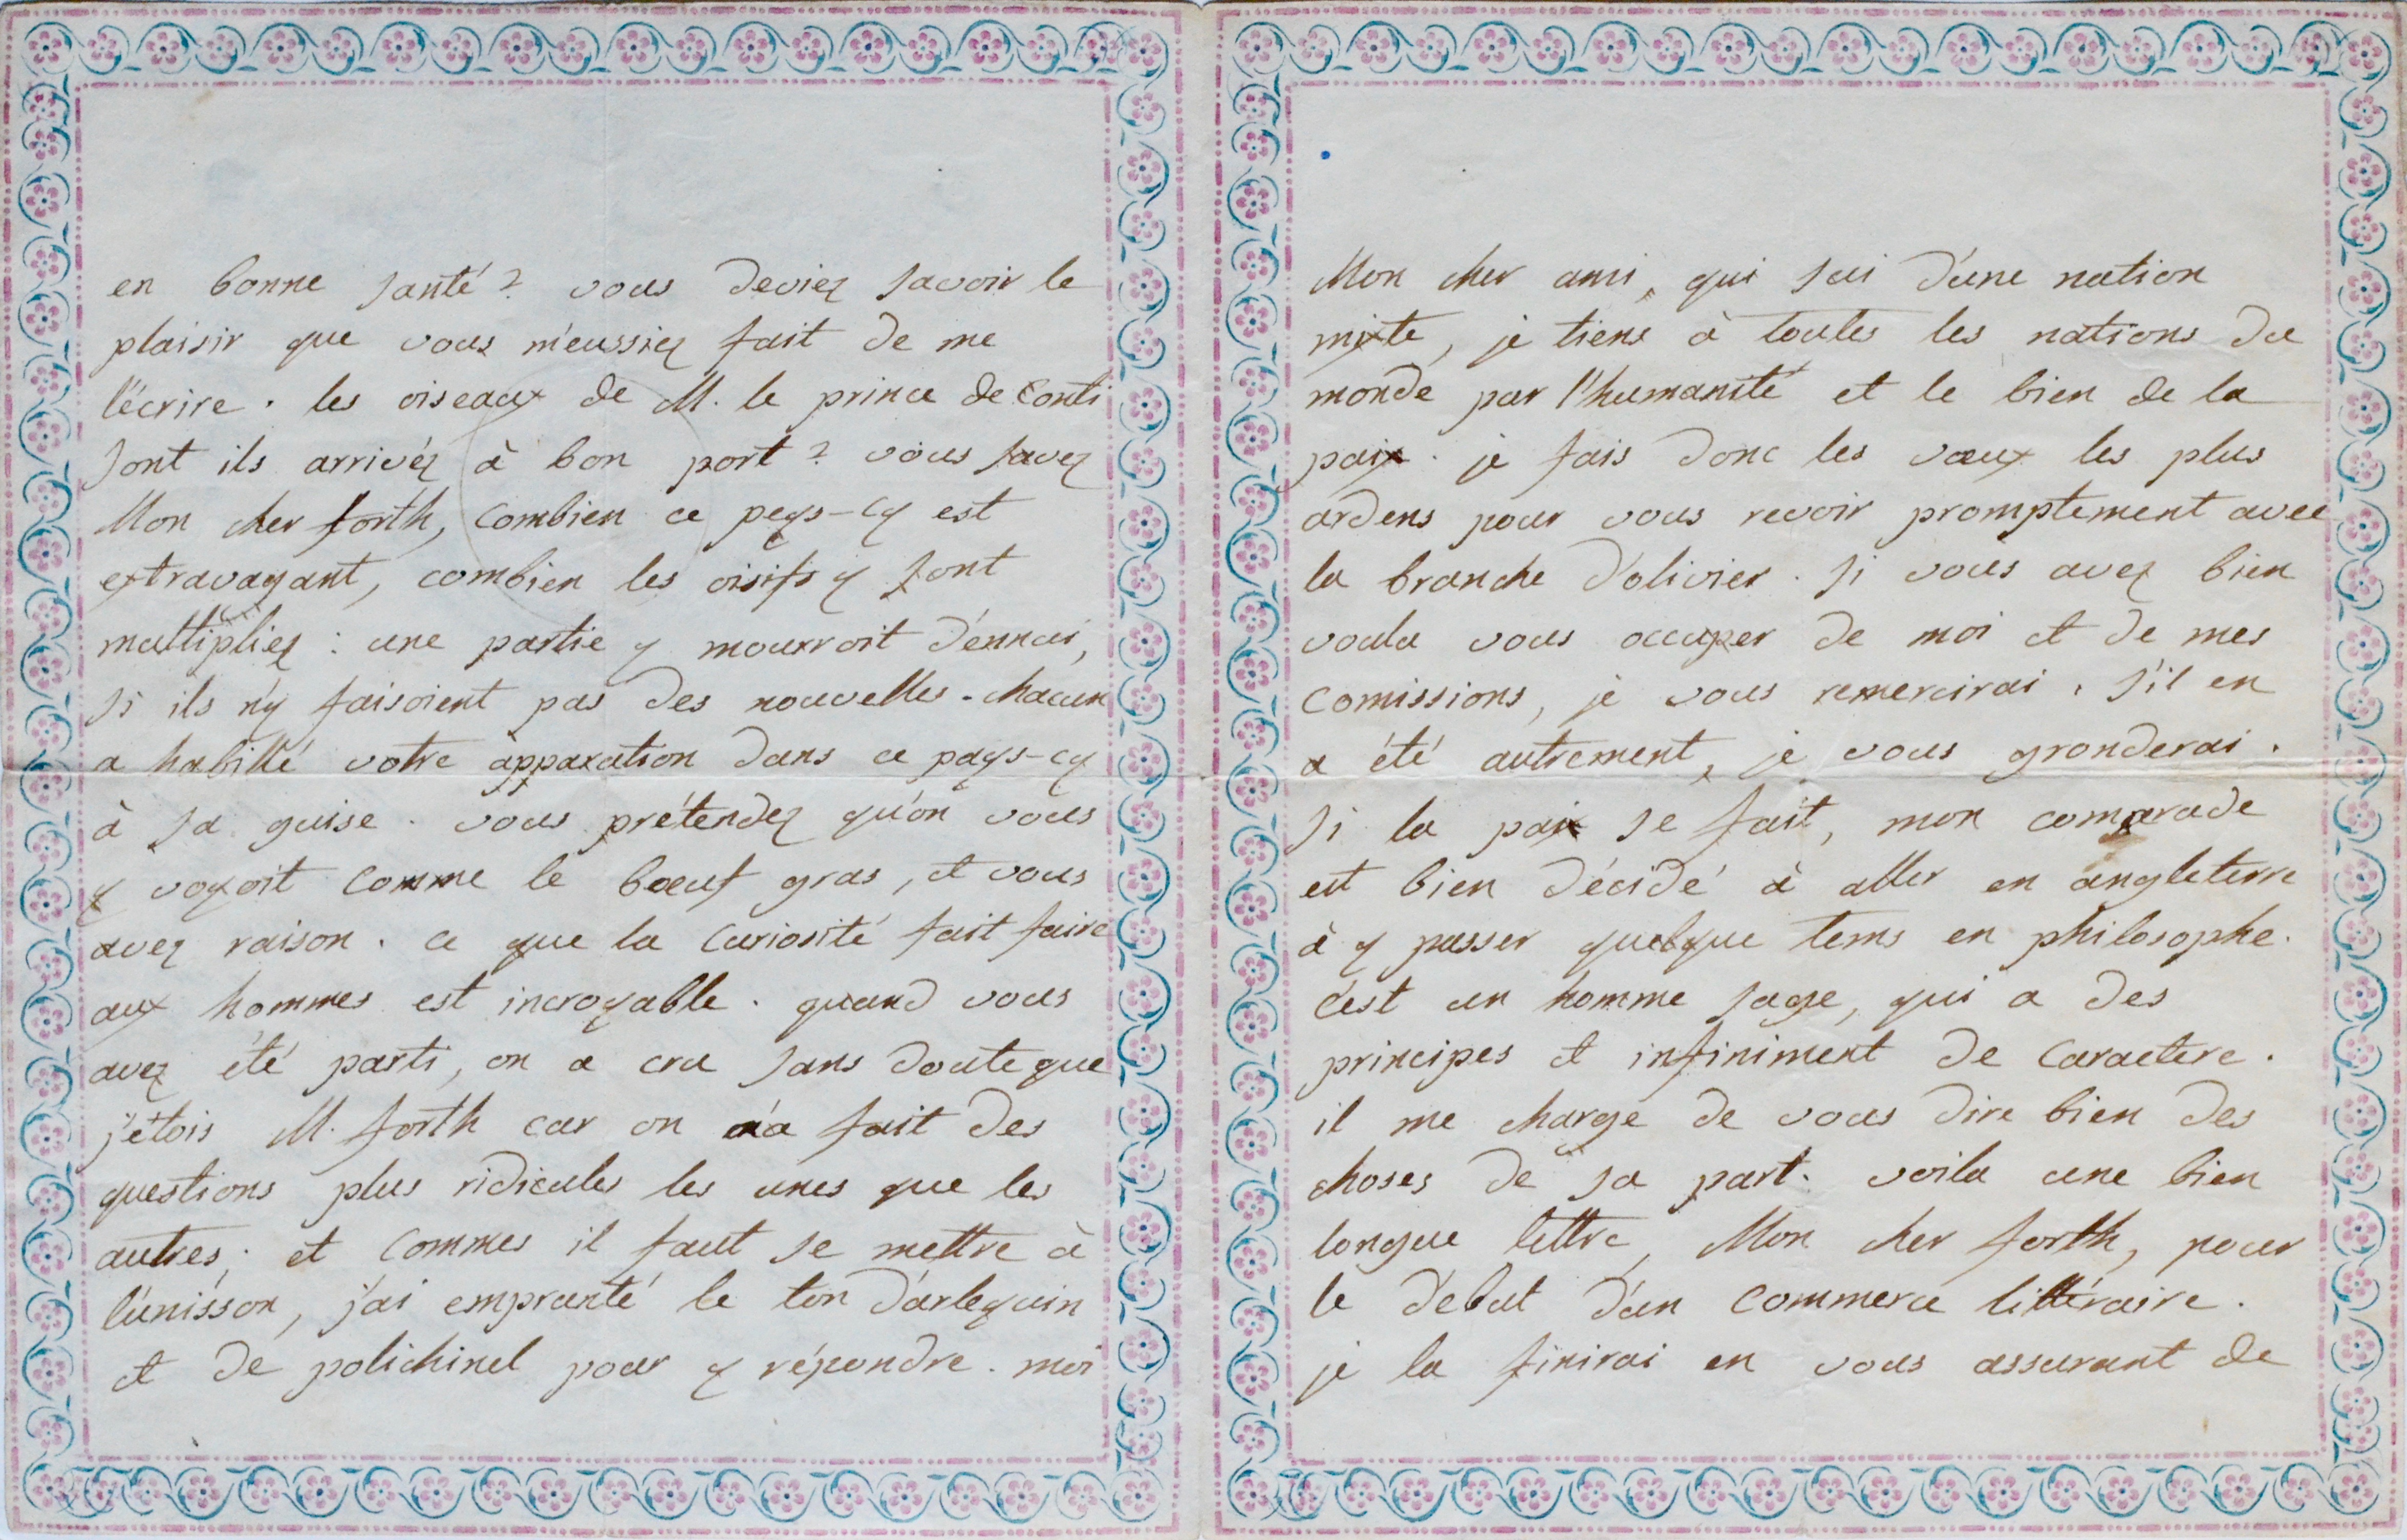 en bonne santé ? vous deviez savoir le
plaisir que vous m'eussiez fait de me
l'écrire . les oiseaux de M. le prince de Conti
sont ils arrivéz à bon port ? vous savez
Mon cher forth, combien ce peys-cy est
extravagant, combien les oisifs y sont
multipliez : une partie y mourroit d'ennui,
si ils n'y faisoient pas des nouvelles . chacun
a habillé votre apparation dans ce pays-cy
à sa guise . vous prétendez qu'on vous
y voyoit comme le boeuf gras, et vous
avez raison . ce que la curiosité fait faire
aux hommes est incroyable . quand vous
avez été parti, on a cru sans doute que
j'étois M. forth car on m'a fait des
questions plus ridicules les unes que les
autres ; et commes il faut se mettre à
l'unisson, j'ai emprunté le ton d'arlequin
et de polichinel pour y répondre . moi
Mon cher ami, qui sui d'une nation
mixte, je tiens à toutes les nations du
monde par l'humanité et le bien de la
paix . je fais donc les voeux les plus
ardens pour vous revoir promptement avec
la branche d'olivier . si vous avez bien
voulu vous occuper de moi et de mes
comissions, je vous remercirai . s'il en
a été autrement, je vous gronderai .
si la paix se fait, mon camarade
est bien décidé à aller en angleterre
à y passer quelque tems en philosophe .
c'est un homme sage, qui a des
principes et infiniment de caractere .
il me charge de vous dire bien des
choses de sa part . voila une bien
longue lettre, Mon cher forth, pour
le début d'un commerce littéraire .
je la finirai en vous assurant de